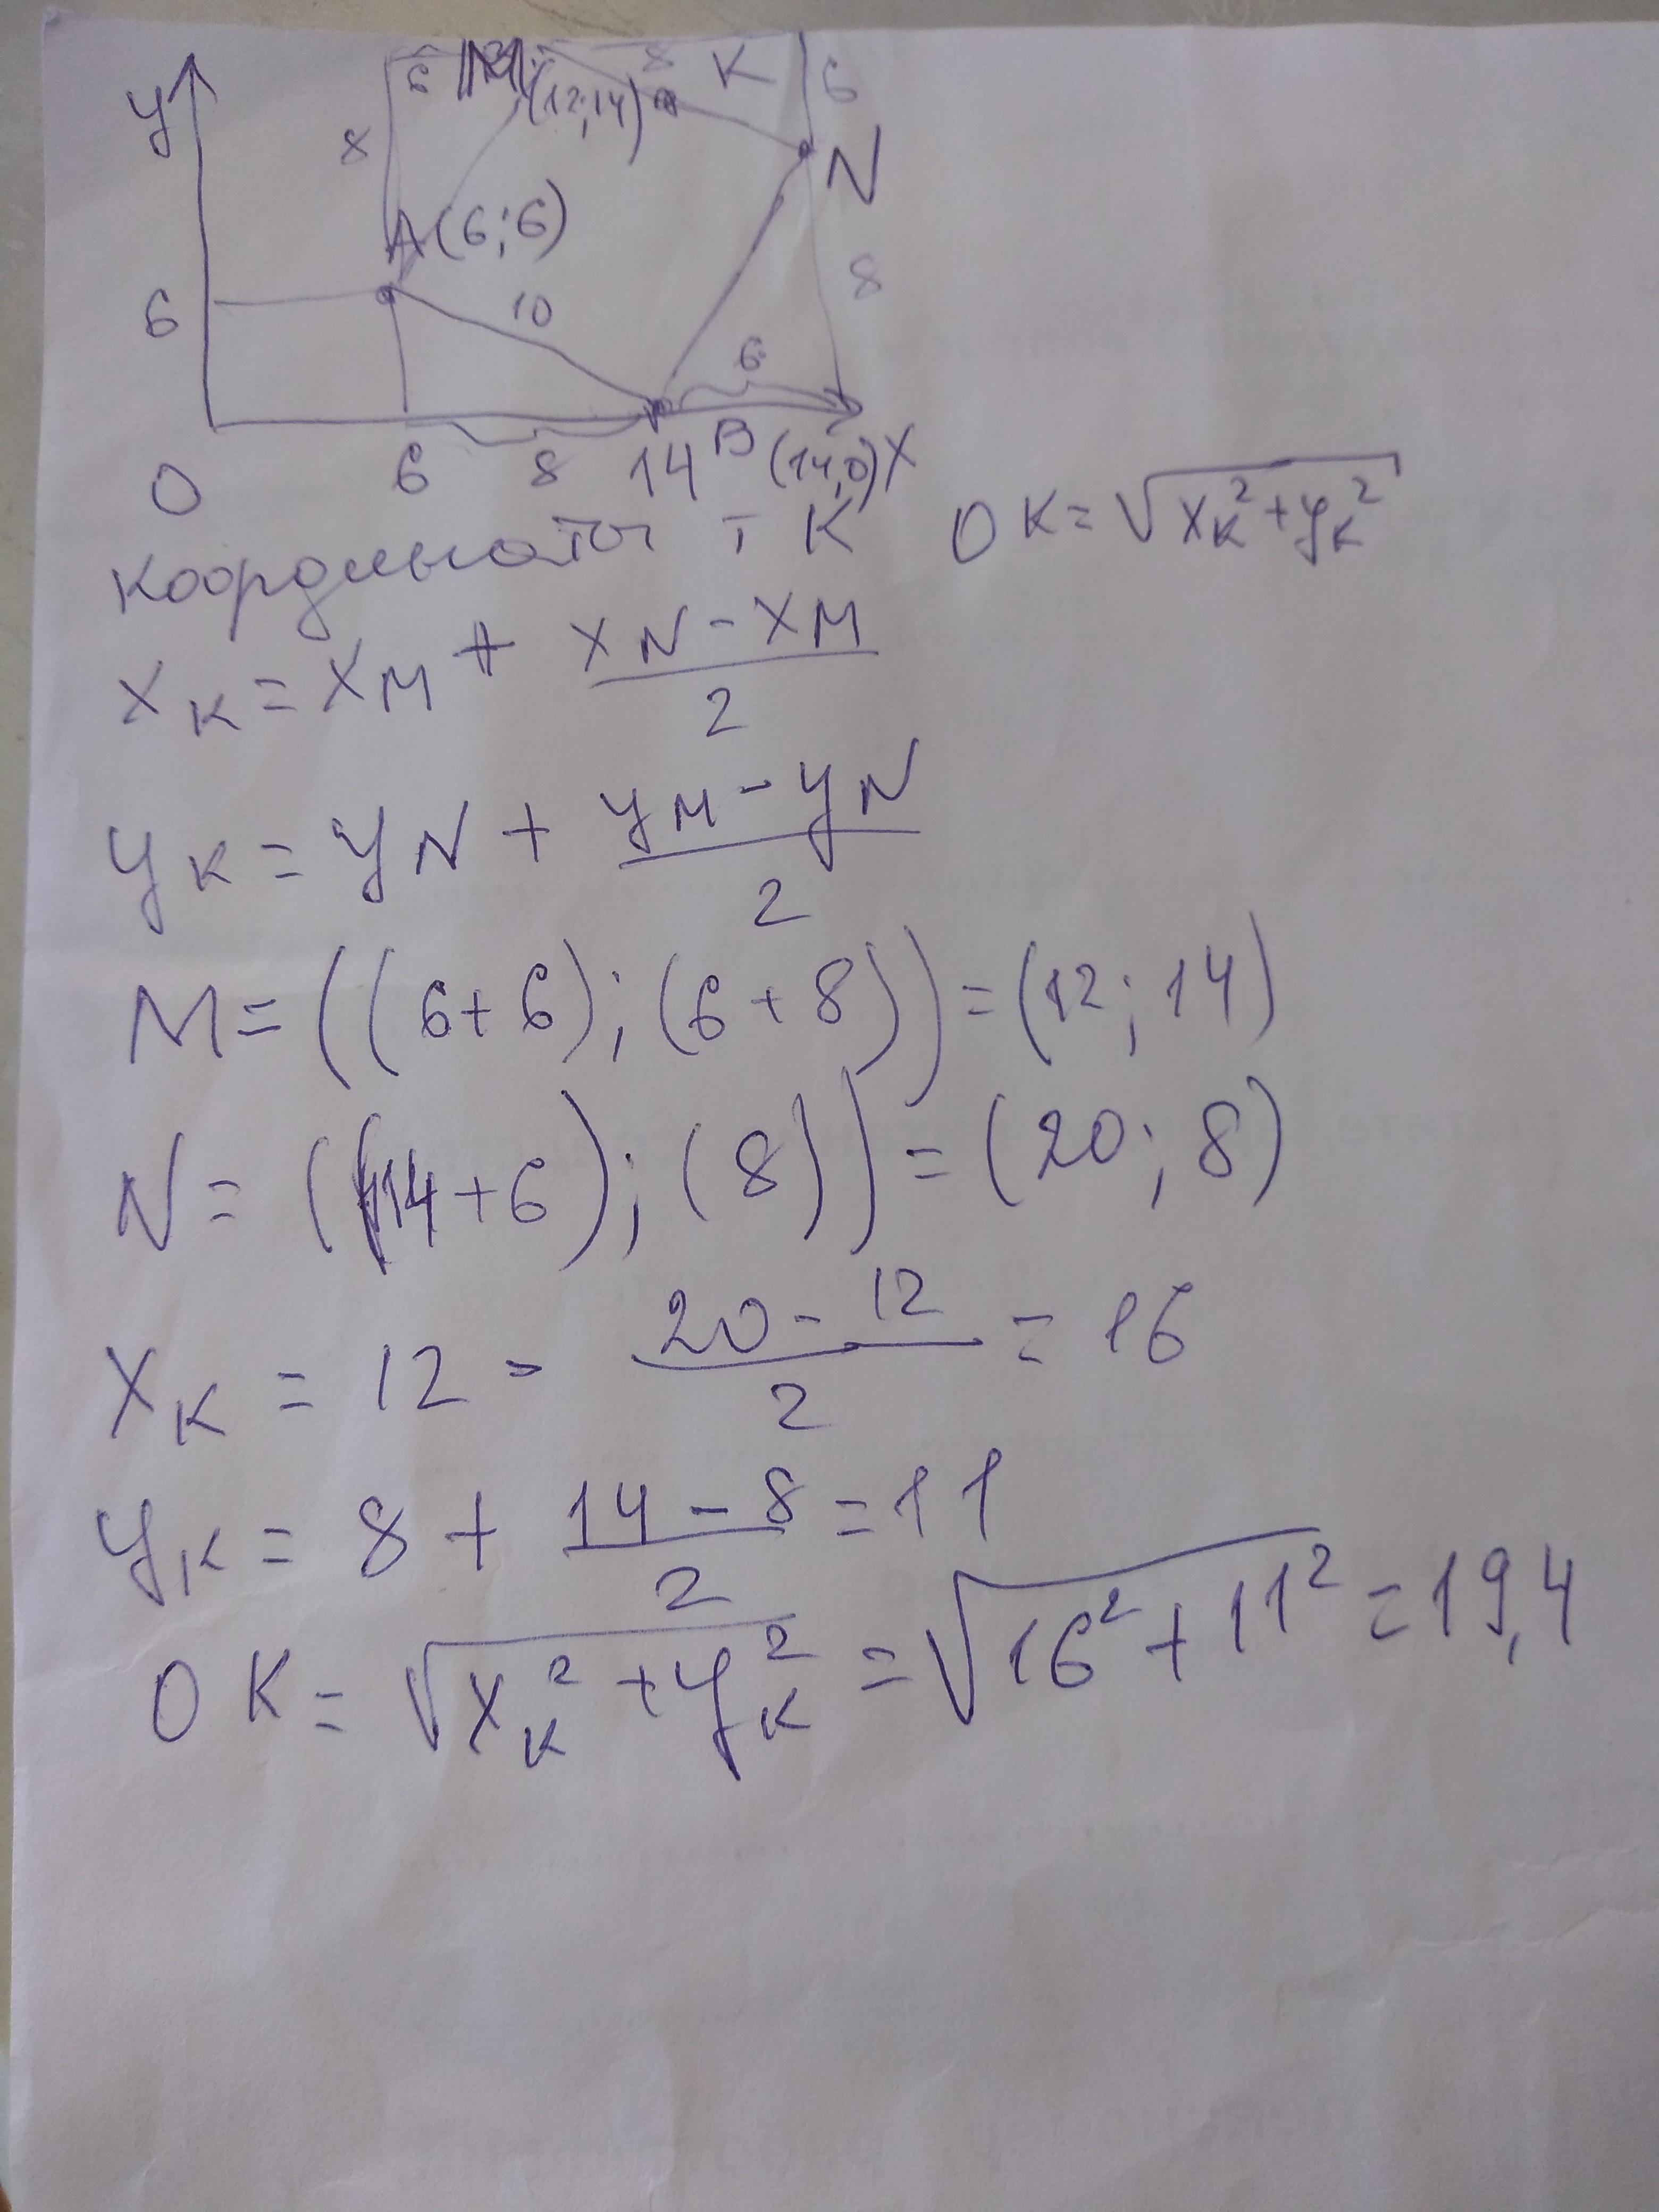 y 6 M 8 K 6
(12;14)
8
N
A(6;6)
6 10 8
6
0 6 8 14 B (14,0) X
координаты т K OK = √(x_K² + y_K²)
x_K = x_M + (x_N - x_M)/2
y_K = y_N + (y_M - y_N)/2
M = ((6+6);(6+8)) = (12;14)
N = ((14+6);(8)) = (20;8)
x_K = 12 - (20-12)/2 = 16
y_K = 8 + (14-8)/2 = 11
OK = √(x_K² + y_K²) = √(16² + 11²) = 19,4